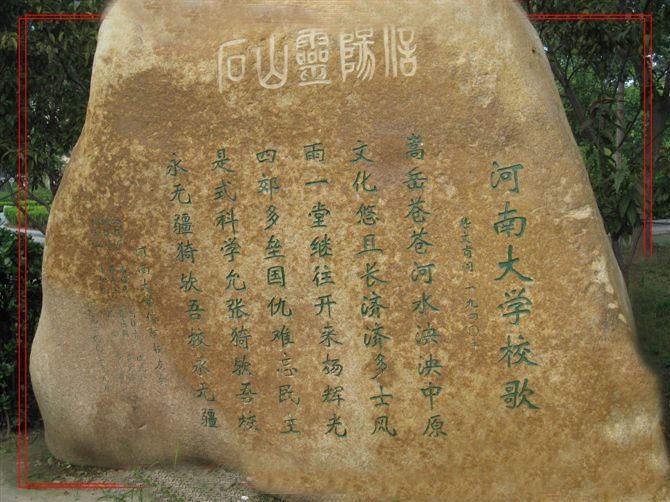 信阳靈山石
河南大学校歌
嵩岳苍苍河水泱泱中原
文化悠且长济济多士风
雨一堂继往开来扬辉光
四郊多垒国仇难忘民主
是式科学允张猗欤吾校
永无疆猗欤吾校永无疆